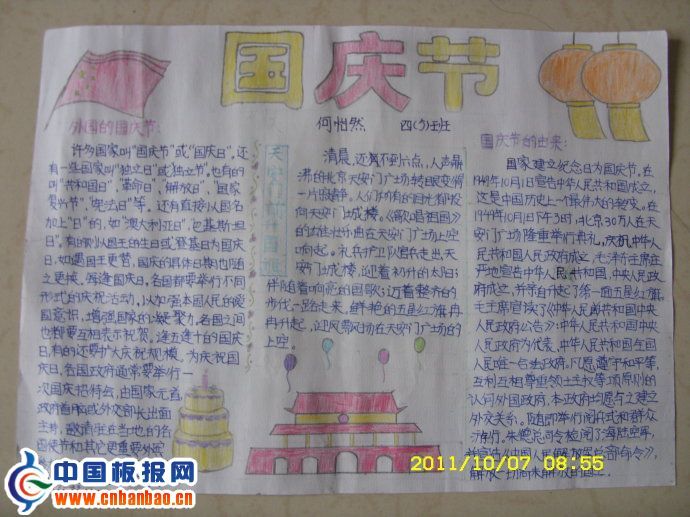 国庆节
何怡然 四(5)班
外国的国庆节:
许多国家叫“国庆节”或“国庆日”,还
有一些国家叫“独立日”或“独立节”,也有的
叫“共和国日”,“革命日”,“解放日”,“国家
复兴节”,“宪法日”等。还有直接以国名
加上“日”的,如“澳大利亚日”,“巴基斯坦
日”。有的则以国王的生日或登基日为国庆
日,如遇国王更替,国庆的具体日期也随
之更换。每逢国庆日,各国都要举行不同
形式的庆祝活动,以加强本国人民的爱
国意识,增强国家的凝聚力。各国之间
也都要互相表示祝贺。逢五逢十的国庆
日,有的还要扩大庆祝规模。为庆祝国
庆日,各国政府通常要举行一
次国庆招待会,由国家元首、
政府首脑或外交部长出面
主持,邀请驻在当地的各
国使节和其它重要外宾
天安门前看升旗
清晨,还不到六点,人声鼎
沸的北京天安门广场转眼变得
一片寂静。人们所有的目光都投
向天安门城楼。《歌唱祖国》
的乐曲在天安门广场上空
响起。礼兵护卫队官兵走出天
安门城楼,迎着初升的太阳;
伴随着响亮的国歌;迈着整齐的
步伐一路走来,鲜艳的五星红旗冉
冉升起,迎风飘扬在天安门广场的
上空。
国庆节的由来:
国家建立纪念日为国庆节。在
1949年10月1日宣告中华人民共和国成立,
这是中国历史上一个最伟大的转变。在
1949年10月1日下午3时,北京30万人在天
安门广场隆重举行典礼,庆祝中华人
民共和国中央人民政府成立。毛泽东主席庄
严地宣告中华人民共和国、中央人民政
府成立,并亲自升起了第一面五星红旗。
毛主席宣读了《中华人民共和国中央
人民政府公告》:中华人民共和国中央
人民政府为代表中华人民共和国全国
人民唯一合法政府。凡愿遵守和平等,
互利互相尊重领土主权等项原则的
认何外国政府,本政府均愿与之建立
外交关系。随即举行阅兵式和群众
游行。朱德总司令检阅了海陆空军,
并宣布《中国人民解放军总部命令》,
2011/10/07 08:55
中国板报网
www.cnbanbao.cn